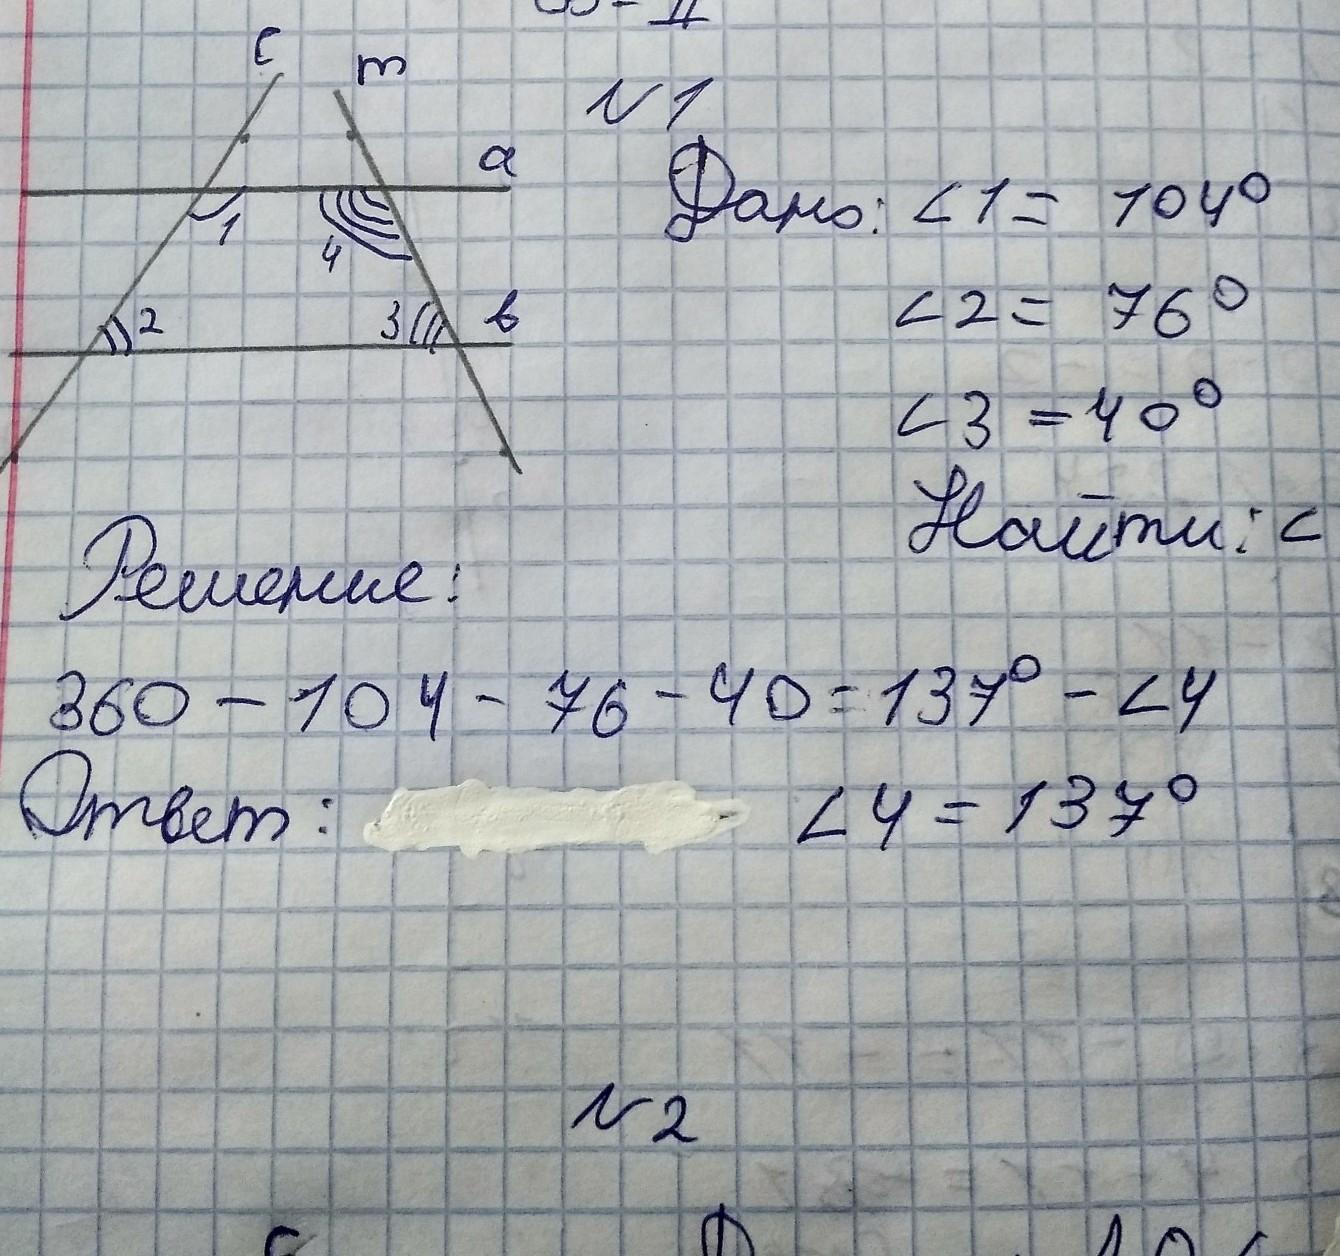 c m
№1
a
Дано: ∠1 = 104°
1
4
∠2 = 76°
2 3 b
∠3 = 40°
Найти: ∠
Решение:
360 - 104 - 76 - 40 = 137° - ∠4
Ответ: ∠4 = 137°
№2